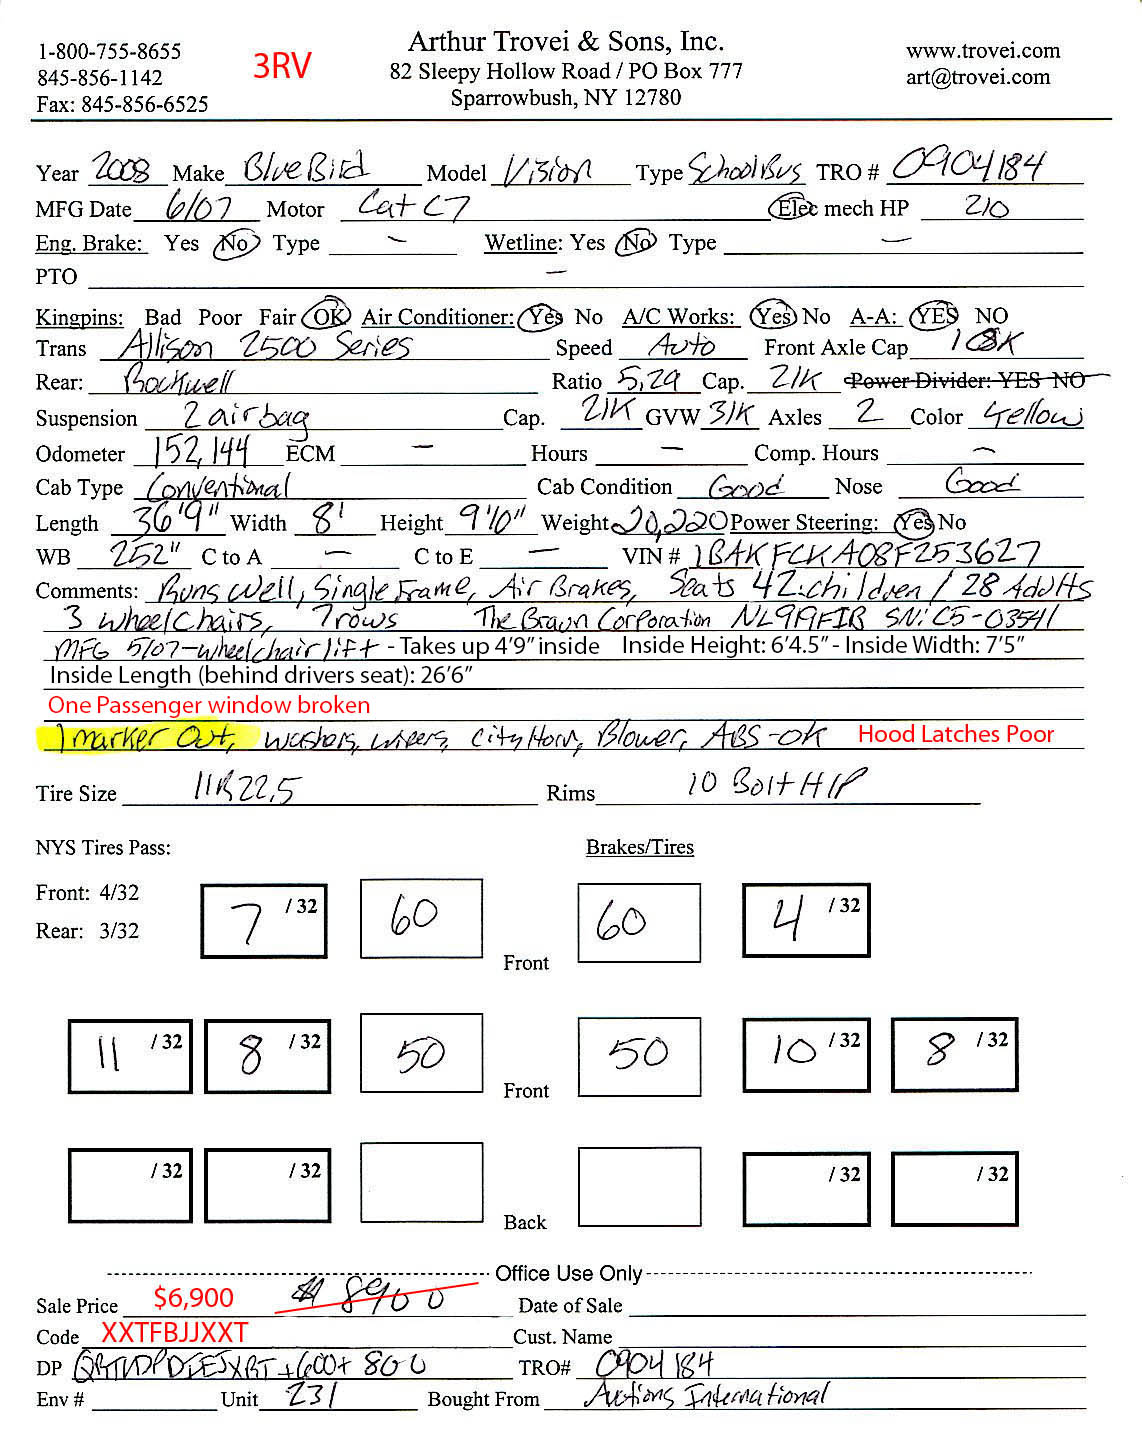 Arthur Trovei & Sons, Inc.
1-800-755-8655 3RV 82 Sleepy Hollow Road / PO Box 777 www.trovei.com
845-856-1142 Sparrowbush, NY 12780 art@trovei.com
Fax: 845-856-6525
Year 2008 Make BlueBird Model Vision Type School Bus TRO # 0904184
MFG Date 6/07 Motor Cat C7 Elec mech HP 210
Eng. Brake: Yes No Type - Wetline: Yes No Type -
PTO -
Kingpins: Bad Poor Fair OK Air Conditioner: Yes No A/C Works: Yes No A-A: YES NO
Trans Allison 2500 Series Speed Auto Front Axle Cap 10K
Rear: Rockwell Ratio 5.29 Cap. 21K Power Divider: YES NO
Suspension 2 airbag Cap. 21K GVW 31K Axles 2 Color Yellow
Odometer 152,144 ECM - Hours - Comp. Hours -
Cab Type Conventional Cab Condition Good Nose Good
Length 36'9" Width 8' Height 9'10" Weight 20,220 Power Steering: Yes No
WB 252" C to A - C to E - VIN # 1BAKFCKA08F253627
Comments: Runs Well, Single Frame, Air Brakes, Seats 42 children / 28 Adults
3 wheelchairs, 7 rows The Braun Corporation NL919FIB SN: C5-03541
MFG 5/07-wheelchair lift - Takes up 4'9" inside Inside Height: 6'4.5" - Inside Width: 7'5"
Inside Length (behind drivers seat): 26'6"
One Passenger window broken
1 marker out, washers, wipers, City Horn, Blower, ABS-OK Hood Latches Poor
Tire Size 11R22.5 Rims 10 Bolt H/P
NYS Tires Pass: Brakes/Tires
Front: 4/32
Rear: 3/32
7 /32 60 60 4 /32
Front
11 /32 8 /32 50 50 10 /32 8 /32
Front
/32 /32 /32 /32
Back
Office Use Only
Sale Price $6,900 $8900 Date of Sale
Code XXTFBJJXXT Cust. Name
DP +600+ 800 TRO# 0904184
Env # Unit 231 Bought From Auctions International